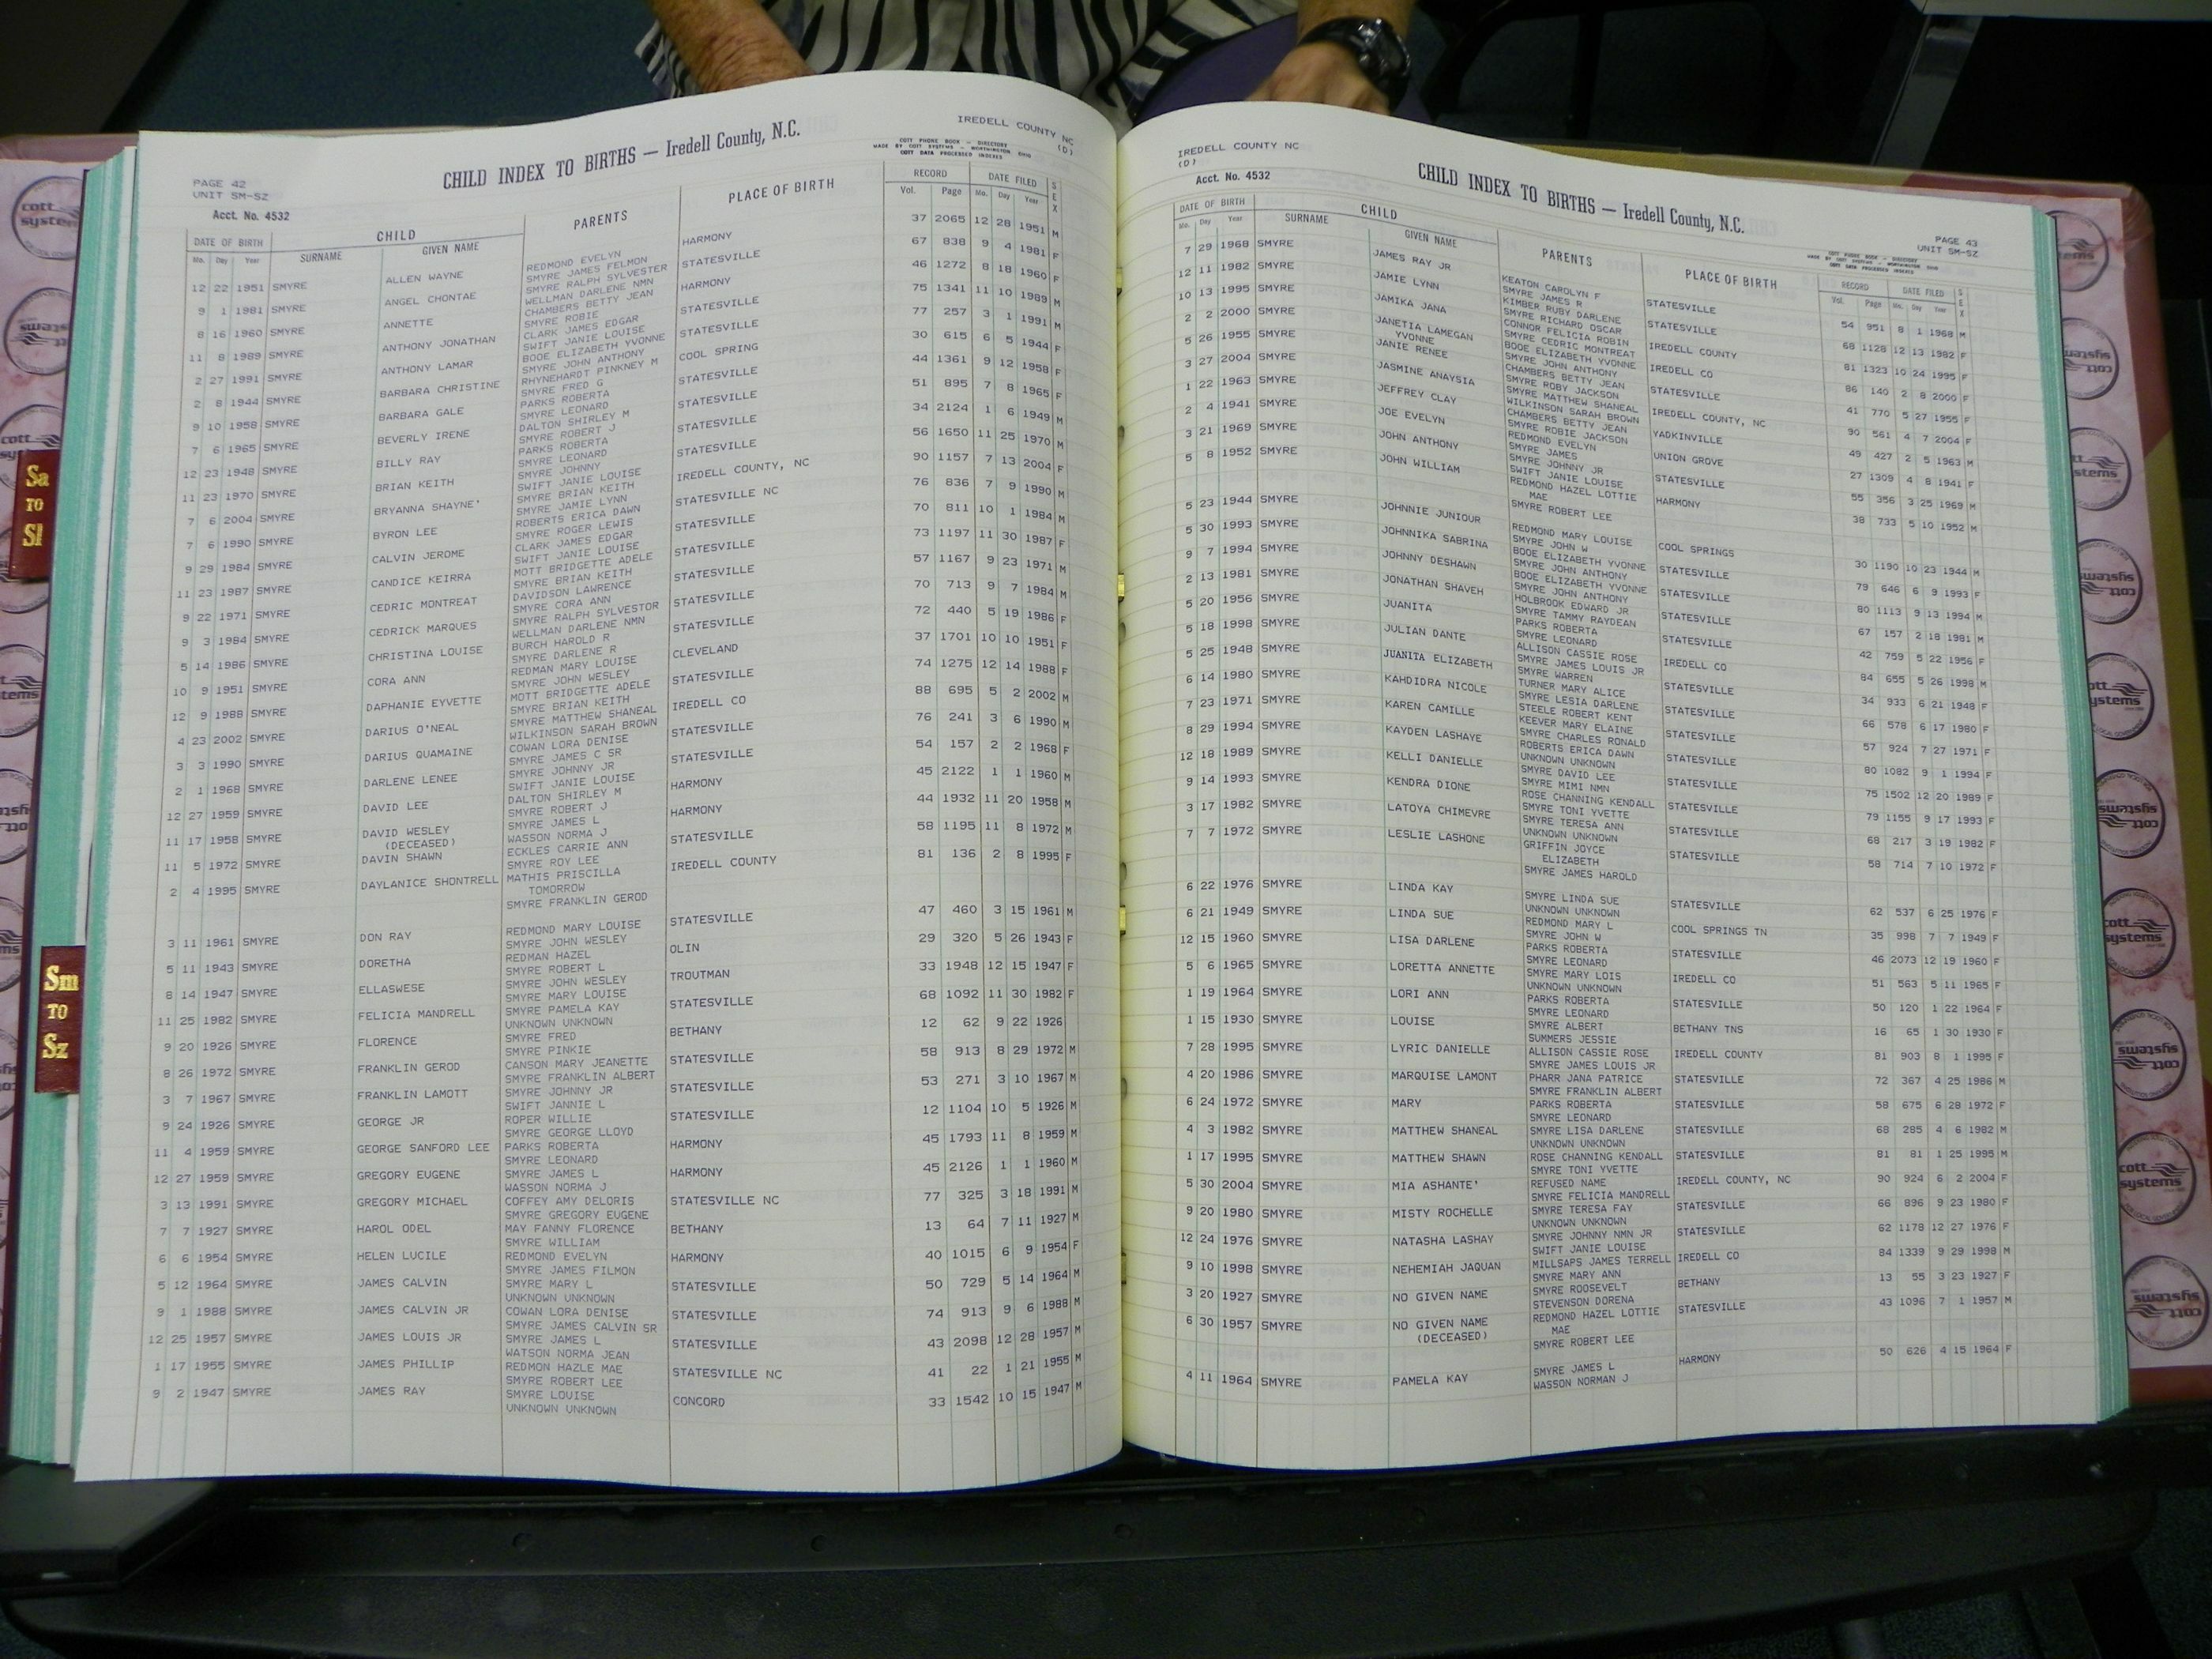 IREDELL COUNTY NC
(D)
CHILD INDEX TO BIRTHS — Iredell County, N.C.
COTT PHONE BOOK - DIRECTORY
MADE BY COTT SYSTEMS - WORTHINGTON OHIO
COTT DATA PROCESSED INDEXES
PAGE 42
UNIT SM-SZ
Acct. No. 4532
DATE OF BIRTH CHILD PARENTS PLACE OF BIRTH RECORD DATE FILED SEX
Mo. Day Year SURNAME GIVEN NAME Vol. Page Mo. Day Year
12 22 1951 SMYRE ALLEN WAYNE REDMOND EVELYN HARMONY 37 2065 12 28 1951 M
SMYRE JAMES FELMON
9 1 1981 SMYRE ANGEL CHONTAE SMYRE RALPH SYLVESTER STATESVILLE 67 838 9 4 1981 F
WELLMAN DARLENE NMN
8 16 1960 SMYRE ANNETTE CHAMBERS BETTY JEAN HARMONY 46 1272 8 18 1960 F
SMYRE ROBIE
11 8 1989 SMYRE ANTHONY JONATHAN CLARK JAMES EDGAR STATESVILLE 75 1341 11 10 1989 M
SWIFT JANIE LOUISE
2 27 1991 SMYRE ANTHONY LAMAR BOOE ELIZABETH YVONNE STATESVILLE 77 257 3 1 1991 M
SMYRE JOHN ANTHONY
2 8 1944 SMYRE BARBARA CHRISTINE RHYNEHARDT PINKNEY M COOL SPRING 30 615 6 5 1944 F
SMYRE FRED G
9 10 1958 SMYRE BARBARA GALE PARKS ROBERTA STATESVILLE 44 1361 9 12 1958 F
SMYRE LEONARD
7 6 1965 SMYRE BEVERLY IRENE DALTON SHIRLEY M STATESVILLE 51 895 7 8 1965 F
SMYRE ROBERT J
12 23 1948 SMYRE BILLY RAY PARKS ROBERTA STATESVILLE 34 2124 1 6 1949 M
SMYRE LEONARD
11 23 1970 SMYRE BRIAN KEITH SMYRE JOHNNY STATESVILLE 56 1650 11 25 1970 M
SWIFT JANIE LOUISE
7 6 2004 SMYRE BRYANNA SHAYNE' SMYRE BRIAN KEITH IREDELL COUNTY, NC 90 1157 7 13 2004 F
SMYRE JAMIE LYNN
7 6 1990 SMYRE BYRON LEE ROBERTS ERICA DAWN STATESVILLE NC 76 836 7 9 1990 M
SMYRE ROGER LEWIS
9 29 1984 SMYRE CALVIN JEROME CLARK JAMES EDGAR STATESVILLE 70 811 10 1 1984 M
SWIFT JANIE LOUISE
11 23 1987 SMYRE CANDICE KEIRRA MOTT BRIDGETTE ADELE STATESVILLE 73 1197 11 30 1987 F
SMYRE BRIAN KEITH
9 22 1971 SMYRE CEDRIC MONTREAT DAVIDSON LAWRENCE STATESVILLE 57 1167 9 23 1971 M
SMYRE CORA ANN
9 3 1984 SMYRE CEDRICK MARQUES SMYRE RALPH SYLVESTOR STATESVILLE 70 713 9 7 1984 M
WELLMAN DARLENE NMN
5 14 1986 SMYRE CHRISTINA LOUISE BURCH HAROLD R STATESVILLE 72 440 5 19 1986 F
SMYRE DARLENE R
10 9 1951 SMYRE CORA ANN REDMAN MARY LOUISE CLEVELAND 37 1701 10 10 1951 F
SMYRE JOHN WESLEY
12 9 1988 SMYRE DAPHANIE EYVETTE MOTT BRIDGETTE ADELE STATESVILLE 74 1275 12 14 1988 F
SMYRE BRIAN KEITH
4 23 2002 SMYRE DARIUS O'NEAL SMYRE MATTHEW SHANEAL IREDELL CO 88 695 5 2 2002 M
WILKINSON SARAH BROWN
3 3 1990 SMYRE DARIUS QUAMAINE COWAN LORA DENISE STATESVILLE 76 241 3 6 1990 M
SMYRE JAMES C SR
2 1 1968 SMYRE DARLENE LENEE SMYRE JOHNNY JR STATESVILLE 54 157 2 2 1968 F
SWIFT JANIE LOUISE
12 27 1959 SMYRE DAVID LEE DALTON SHIRLEY M HARMONY 45 2122 1 1 1960 M
SMYRE ROBERT J
11 17 1958 SMYRE DAVID WESLEY SMYRE JAMES L HARMONY 44 1932 11 20 1958 M
(DECEASED) WASSON NORMA J
11 5 1972 SMYRE DAVIN SHAWN ECKLES CARRIE ANN STATESVILLE 58 1195 11 8 1972 M
SMYRE ROY LEE
2 4 1995 SMYRE DAYLANICE SHONTRELL MATHIS PRISCILLA IREDELL COUNTY 81 136 2 8 1995 F
TOMORROW
SMYRE FRANKLIN GEROD
3 11 1961 SMYRE DON RAY REDMOND MARY LOUISE STATESVILLE 47 460 3 15 1961 M
SMYRE JOHN WESLEY
5 11 1943 SMYRE DORETHA REDMAN HAZEL OLIN 29 320 5 26 1943 F
SMYRE ROBERT L
8 14 1947 SMYRE ELLASWESE SMYRE JOHN WESLEY TROUTMAN 33 1948 12 15 1947 F
SMYRE MARY LOUISE
11 25 1982 SMYRE FELICIA MANDRELL SMYRE PAMELA KAY STATESVILLE 68 1092 11 30 1982 F
UNKNOWN UNKNOWN
9 20 1926 SMYRE FLORENCE SMYRE FRED BETHANY 12 62 9 22 1926
SMYRE PINKIE
8 26 1972 SMYRE FRANKLIN GEROD CANSON MARY JEANETTE STATESVILLE 58 913 8 29 1972 M
SMYRE FRANKLIN ALBERT
3 7 1967 SMYRE FRANKLIN LAMOTT SMYRE JOHNNY JR STATESVILLE 53 271 3 10 1967 M
SWIFT JANNIE L
9 24 1926 SMYRE GEORGE JR ROPER WILLIE STATESVILLE 12 1104 10 5 1926 M
SMYRE GEORGE LLOYD
11 4 1959 SMYRE GEORGE SANFORD LEE PARKS ROBERTA HARMONY 45 1793 11 8 1959 M
SMYRE LEONARD
12 27 1959 SMYRE GREGORY EUGENE SMYRE JAMES L HARMONY 45 2126 1 1 1960 M
WASSON NORMA J
3 13 1991 SMYRE GREGORY MICHAEL COFFEY AMY DELORIS STATESVILLE NC 77 325 3 18 1991 M
SMYRE GREGORY EUGENE
7 7 1927 SMYRE HAROL ODEL MAY FANNY FLORENCE BETHANY 13 64 7 11 1927 M
SMYRE WILLIAM
6 6 1954 SMYRE HELEN LUCILE REDMOND EVELYN HARMONY 40 1015 6 9 1954 F
SMYRE JAMES FILMON
5 12 1964 SMYRE JAMES CALVIN SMYRE MARY L STATESVILLE 50 729 5 14 1964 M
UNKNOWN UNKNOWN
9 1 1988 SMYRE JAMES CALVIN JR COWAN LORA DENISE STATESVILLE 74 913 9 6 1988 M
SMYRE JAMES CALVIN SR
12 25 1957 SMYRE JAMES LOUIS JR SMYRE JAMES L STATESVILLE 43 2098 12 28 1957 M
WATSON NORMA JEAN
1 17 1955 SMYRE JAMES PHILLIP REDMON HAZLE MAE STATESVILLE NC 41 22 1 21 1955 M
SMYRE ROBERT LEE
9 2 1947 SMYRE JAMES RAY SMYRE LOUISE CONCORD 33 1542 10 15 1947 M
UNKNOWN UNKNOWN
IREDELL COUNTY NC
(D)
Acct. No. 4532
CHILD INDEX TO BIRTHS — Iredell County, N.C.
PAGE 43
UNIT SM-SZ
COTT PHONE BOOK - DIRECTORY
MADE BY COTT SYSTEMS - WORTHINGTON OHIO
COTT DATA PROCESSED INDEXES
DATE OF BIRTH CHILD PARENTS PLACE OF BIRTH RECORD DATE FILED SEX
Mo. Day Year SURNAME GIVEN NAME Vol. Page Mo. Day Year
7 29 1968 SMYRE JAMES RAY JR KEATON CAROLYN F STATESVILLE 54 951 8 1 1968 M
SMYRE JAMES R
12 11 1982 SMYRE JAMIE LYNN KIMBER RUBY DARLENE STATESVILLE 68 1128 12 13 1982 F
SMYRE RICHARD OSCAR
10 13 1995 SMYRE JAMIKA JANA CONNOR FELICIA ROBIN IREDELL COUNTY 81 1323 10 24 1995 F
SMYRE CEDRIC MONTREAT
2 2 2000 SMYRE JANETIA LAMEGAN BOOE ELIZABETH YVONNE IREDELL CO 86 140 2 8 2000 F
YVONNE SMYRE JOHN ANTHONY
5 26 1955 SMYRE JANIE RENEE CHAMBERS BETTY JEAN STATESVILLE 41 770 5 27 1955 F
SMYRE ROBY JACKSON
3 27 2004 SMYRE JASMINE ANAYSIA SMYRE MATTHEW SHANEAL IREDELL COUNTY, NC 90 561 4 7 2004 F
WILKINSON SARAH BROWN
1 22 1963 SMYRE JEFFREY CLAY CHAMBERS BETTY JEAN YADKINVILLE 49 427 2 5 1963 M
SMYRE ROBIE JACKSON
2 4 1941 SMYRE JOE EVELYN REDMOND EVELYN UNION GROVE 27 1309 4 8 1941 F
SMYRE JAMES
3 21 1969 SMYRE JOHN ANTHONY SMYRE JOHNNY JR STATESVILLE 55 356 3 25 1969 M
SWIFT JANIE LOUISE
5 8 1952 SMYRE JOHN WILLIAM REDMOND HAZEL LOTTIE HARMONY 38 733 5 10 1952 M
MAE
SMYRE ROBERT LEE
5 23 1944 SMYRE JOHNNIE JUNIOUR REDMOND MARY LOUISE COOL SPRINGS 30 1190 10 23 1944 M
SMYRE JOHN W
5 30 1993 SMYRE JOHNNIKA SABRINA BOOE ELIZABETH YVONNE STATESVILLE 79 646 6 9 1993 F
SMYRE JOHN ANTHONY
9 7 1994 SMYRE JOHNNY DESHAWN BOOE ELIZABETH YVONNE STATESVILLE 80 1113 9 13 1994 M
SMYRE JOHN ANTHONY
2 13 1981 SMYRE JONATHAN SHAVEH HOLBROOK EDWARD JR STATESVILLE 67 157 2 18 1981 M
SMYRE TAMMY RAYDEAN
5 20 1956 SMYRE JUANITA PARKS ROBERTA IREDELL CO 42 759 5 22 1956 F
SMYRE LEONARD
5 18 1998 SMYRE JULIAN DANTE ALLISON CASSIE ROSE STATESVILLE 84 655 5 26 1998 M
SMYRE JAMES LOUIS JR
5 25 1948 SMYRE JUANITA ELIZABETH SMYRE WARREN STATESVILLE 34 933 6 21 1948 F
TURNER MARY ALICE
6 14 1980 SMYRE KAHDIDRA NICOLE SMYRE LESIA DARLENE STATESVILLE 66 578 6 17 1980 F
STEELE ROBERT KENT
7 23 1971 SMYRE KAREN CAMILLE KEEVER MARY ELAINE STATESVILLE 57 924 7 27 1971 F
SMYRE CHARLES RONALD
8 29 1994 SMYRE KAYDEN LASHAYE ROBERTS ERICA DAWN STATESVILLE 80 1082 9 1 1994 F
UNKNOWN UNKNOWN
12 18 1989 SMYRE KELLI DANIELLE SMYRE DAVID LEE STATESVILLE 75 1502 12 20 1989 F
SMYRE MIMI NMN
9 14 1993 SMYRE KENDRA DIONE ROSE CHANNING KENDALL STATESVILLE 79 1155 9 17 1993 F
SMYRE TONI YVETTE
3 17 1982 SMYRE LATOYA CHIMEVRE SMYRE TERESA ANN STATESVILLE 68 217 3 19 1982 F
UNKNOWN UNKNOWN
7 7 1972 SMYRE LESLIE LASHONE GRIFFIN JOYCE STATESVILLE 58 714 7 10 1972 F
ELIZABETH
SMYRE JAMES HAROLD
6 22 1976 SMYRE LINDA KAY SMYRE LINDA SUE STATESVILLE 62 537 6 25 1976 F
UNKNOWN UNKNOWN
6 21 1949 SMYRE LINDA SUE REDMOND MARY L COOL SPRINGS TN 35 998 7 7 1949 F
SMYRE JOHN W
12 15 1960 SMYRE LISA DARLENE PARKS ROBERTA STATESVILLE 46 2073 12 19 1960 F
SMYRE LEONARD
5 6 1965 SMYRE LORETTA ANNETTE SMYRE MARY LOIS IREDELL CO 51 563 5 11 1965 F
UNKNOWN UNKNOWN
1 19 1964 SMYRE LORI ANN PARKS ROBERTA STATESVILLE 50 120 1 22 1964 F
SMYRE LEONARD
1 15 1930 SMYRE LOUISE SMYRE ALBERT BETHANY TNS 16 65 1 30 1930 F
SUMMERS JESSIE
7 28 1995 SMYRE LYRIC DANIELLE ALLISON CASSIE ROSE IREDELL COUNTY 81 903 8 1 1995 F
SMYRE JAMES LOUIS JR
4 20 1986 SMYRE MARQUISE LAMONT PHARR JANA PATRICE STATESVILLE 72 367 4 25 1986 M
SMYRE FRANKLIN ALBERT
6 24 1972 SMYRE MARY PARKS ROBERTA STATESVILLE 58 675 6 28 1972 F
SMYRE LEONARD
4 3 1982 SMYRE MATTHEW SHANEAL SMYRE LISA DARLENE STATESVILLE 68 285 4 6 1982 M
UNKNOWN UNKNOWN
1 17 1995 SMYRE MATTHEW SHAWN ROSE CHANNING KENDALL STATESVILLE 81 81 1 25 1995 M
SMYRE TONI YVETTE
5 30 2004 SMYRE MIA ASHANTE' REFUSED NAME IREDELL COUNTY, NC 90 924 6 2 2004 F
SMYRE FELICIA MANDRELL
9 20 1980 SMYRE MISTY ROCHELLE SMYRE TERESA FAY STATESVILLE 66 896 9 23 1980 F
UNKNOWN UNKNOWN
12 24 1976 SMYRE NATASHA LASHAY SMYRE JOHNNY NMN JR STATESVILLE 62 1178 12 27 1976 F
SWIFT JANIE LOUISE
9 10 1998 SMYRE NEHEMIAH JAQUAN MILLSAPS JAMES TERRELL IREDELL CO 84 1339 9 29 1998 M
SMYRE MARY ANN
3 20 1927 SMYRE NO GIVEN NAME SMYRE ROOSEVELT BETHANY 13 55 3 23 1927 F
STEVENSON DORENA
6 30 1957 SMYRE NO GIVEN NAME REDMOND HAZEL LOTTIE STATESVILLE 43 1096 7 1 1957 M
(DECEASED) MAE
SMYRE ROBERT LEE
4 11 1964 SMYRE PAMELA KAY SMYRE JAMES L HARMONY 50 626 4 15 1964 F
WASSON NORMAN J
Sa
TO
Sl
Sm
TO
Sz
cott
systems